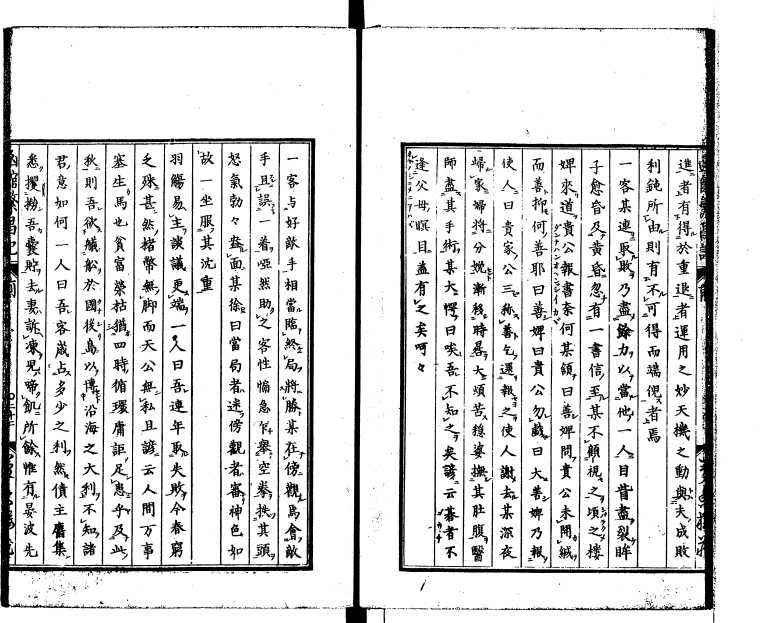 進者有得於重退者運用之妙天機之動與夫成敗
利鈍所由則有不可得而端倪者焉
一客某連取敗乃盡餘力以當他一人目眥盡裂眸
子愈昏及黄昏忽有一書信至某不顧視之頃之樓
婢來道貴公報書奈何某領曰善婢問貴公未開緘
而善抑何善耶曰善婢曰貴公勿戲曰大善婢乃報
使人曰貴家公三称善乞還報之使人謝去某深夜
歸家婦将分娩漸移時晷大煩苦穏婆撫其肚腹醫
師盡其手術某大愕曰唉吾不知之矣諺云碁者不
逢父母瞑目盖有之矣呵々
一客与好敵手相當臨終局将勝某在傍觀焉會敵
手且誤一着啞然助之客性惼急乍舉空拳抶其頭
怒氣勃々盎面某徐曰當局者迷傍觀者審神色如
故一坐服其沈重
羽觴易主談議更端一人曰吾連年取失敗今春窮
乏殊甚然楮幣無脚而天公無私且諺云人間万事
塞生馬也貧富榮枯猶四時循環庸詎足患乎及此
秋則吾欲艤舩於國後島以博沿海之大利不知諸
君意如何一人曰吾客歳占多少之利然債主麕集
悉攫抄吾嚢貯去妻訴凍児啼飢所餘惟有晏波先